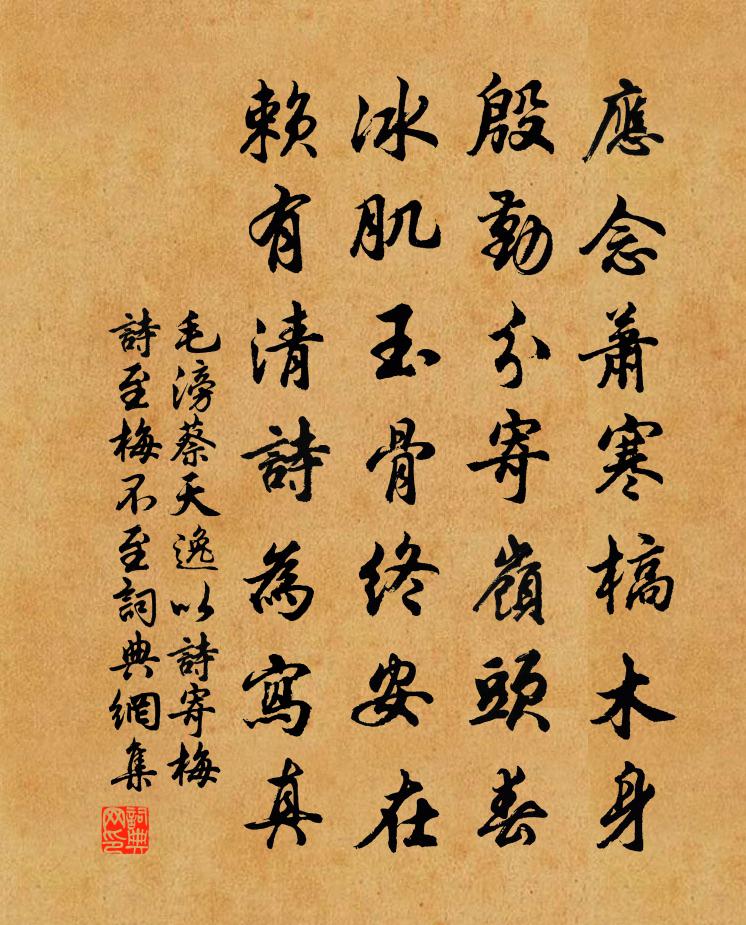 應念蕭寒槁木身
殷勤分寄嶺頭春
冰肌玉骨終安在
賴有清詩為寫真
毛滂蔡天逸以詩寄梅
詩至梅不至詞典網集
詞典网印